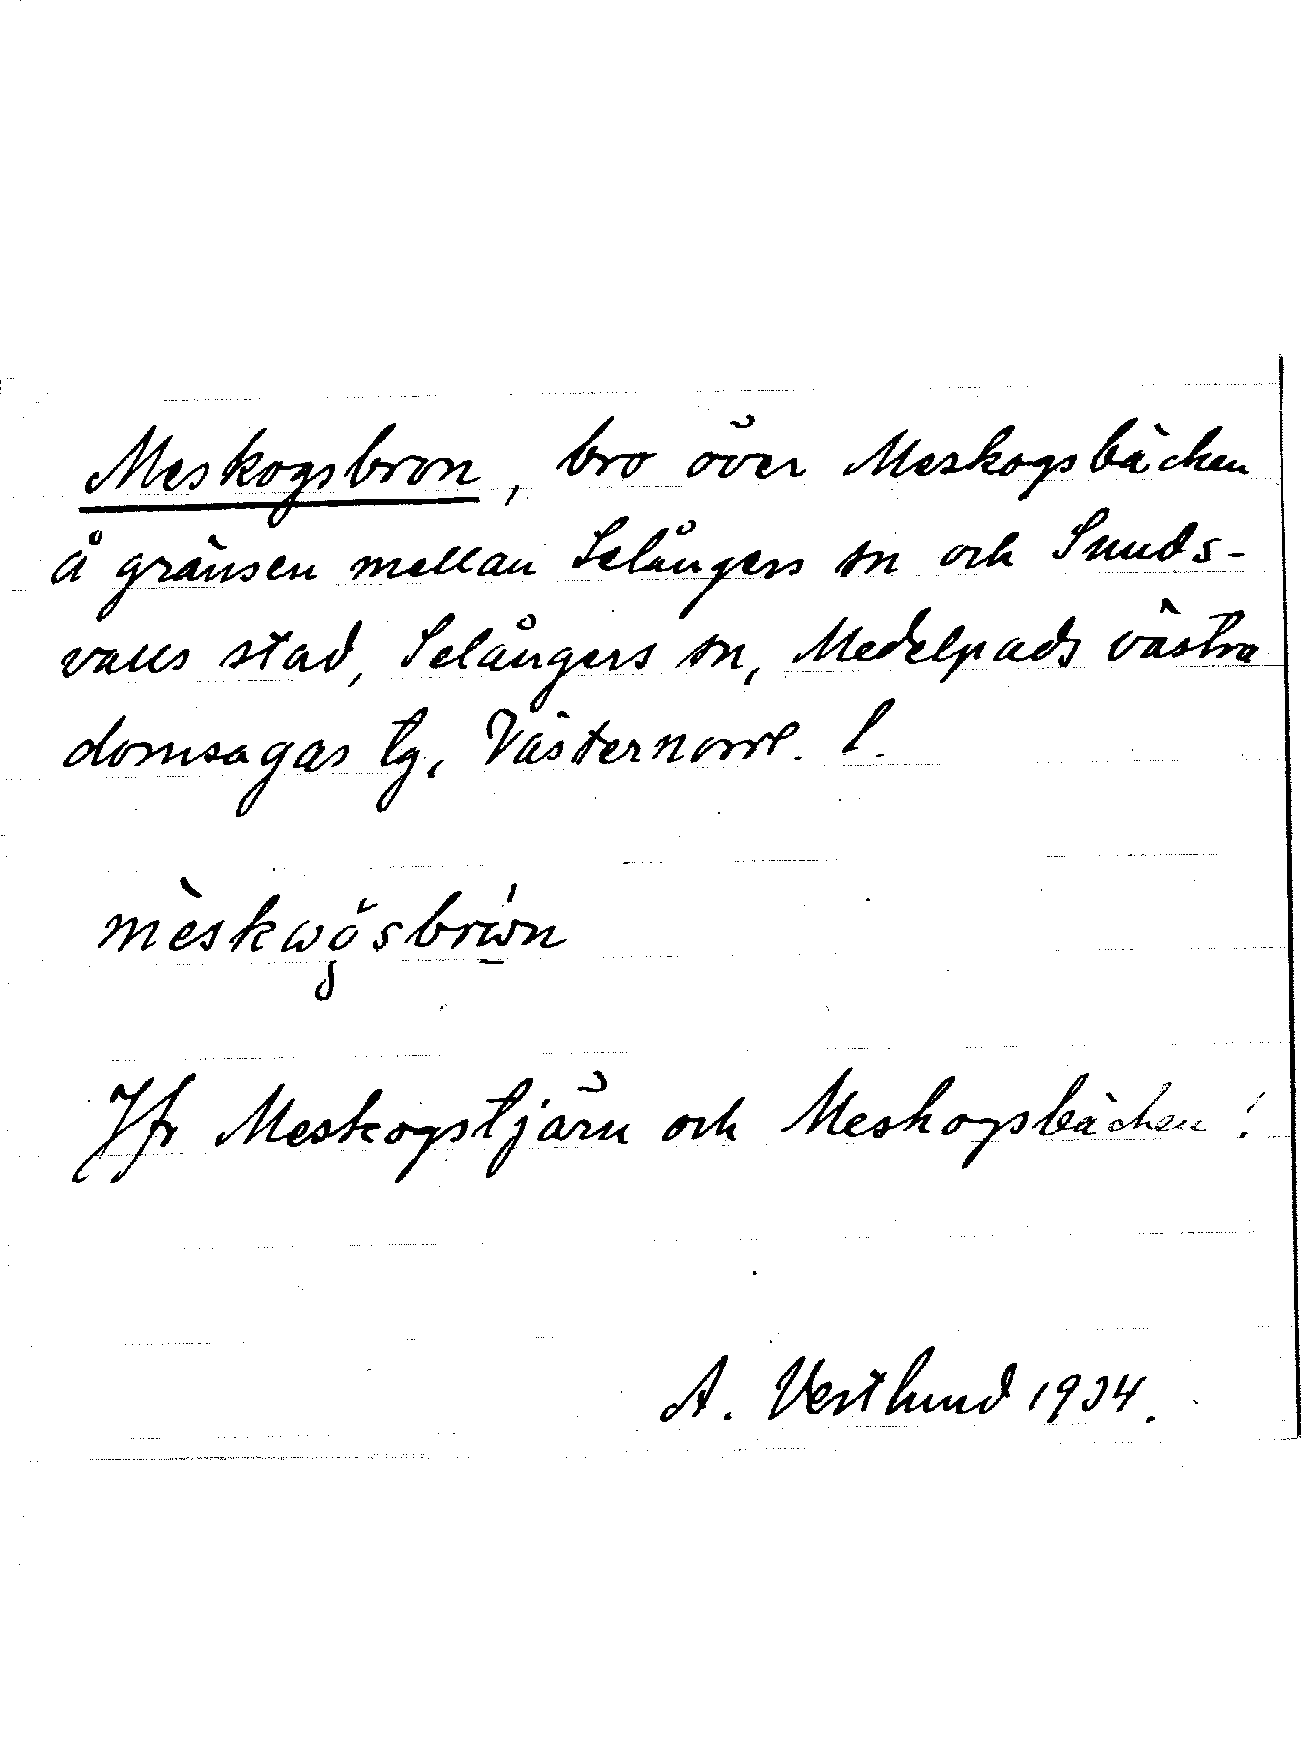 Meskogsbron, bro över Meskogsbäcken
å gränsen mellan Selångers sn och Sunds-
valls stad, Selångers sn, Medelpads västra
domsagas tg, Västernorrl. l.
mèskωgsbrωn
Jfr Meskogstjärn och Meskogsbäcken!
A. Vestlund 1934.